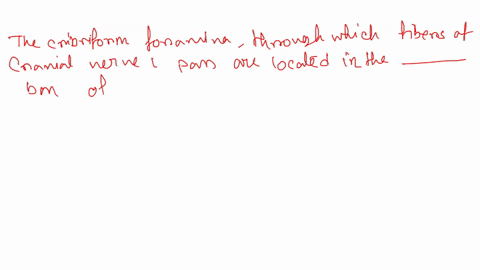 The cribriform foramina, through which fibers of
Cranial nerve i pass are located in the ______
bon of